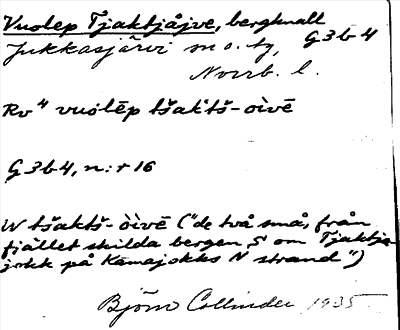 Vuolep Tjaktjåjve, bergknall
Jukkasjärvi sn o. tg, G3b4
Norrb. l.
Rv⁴ vuolēp tšaktš-oìvē
G3b4, n:r 16
W tšaktš-òìvē ("de två små, från
fjället skilda bergen S om Tjaktja-
jokk på Kamajokks N strand")
Björn Collinder 1935